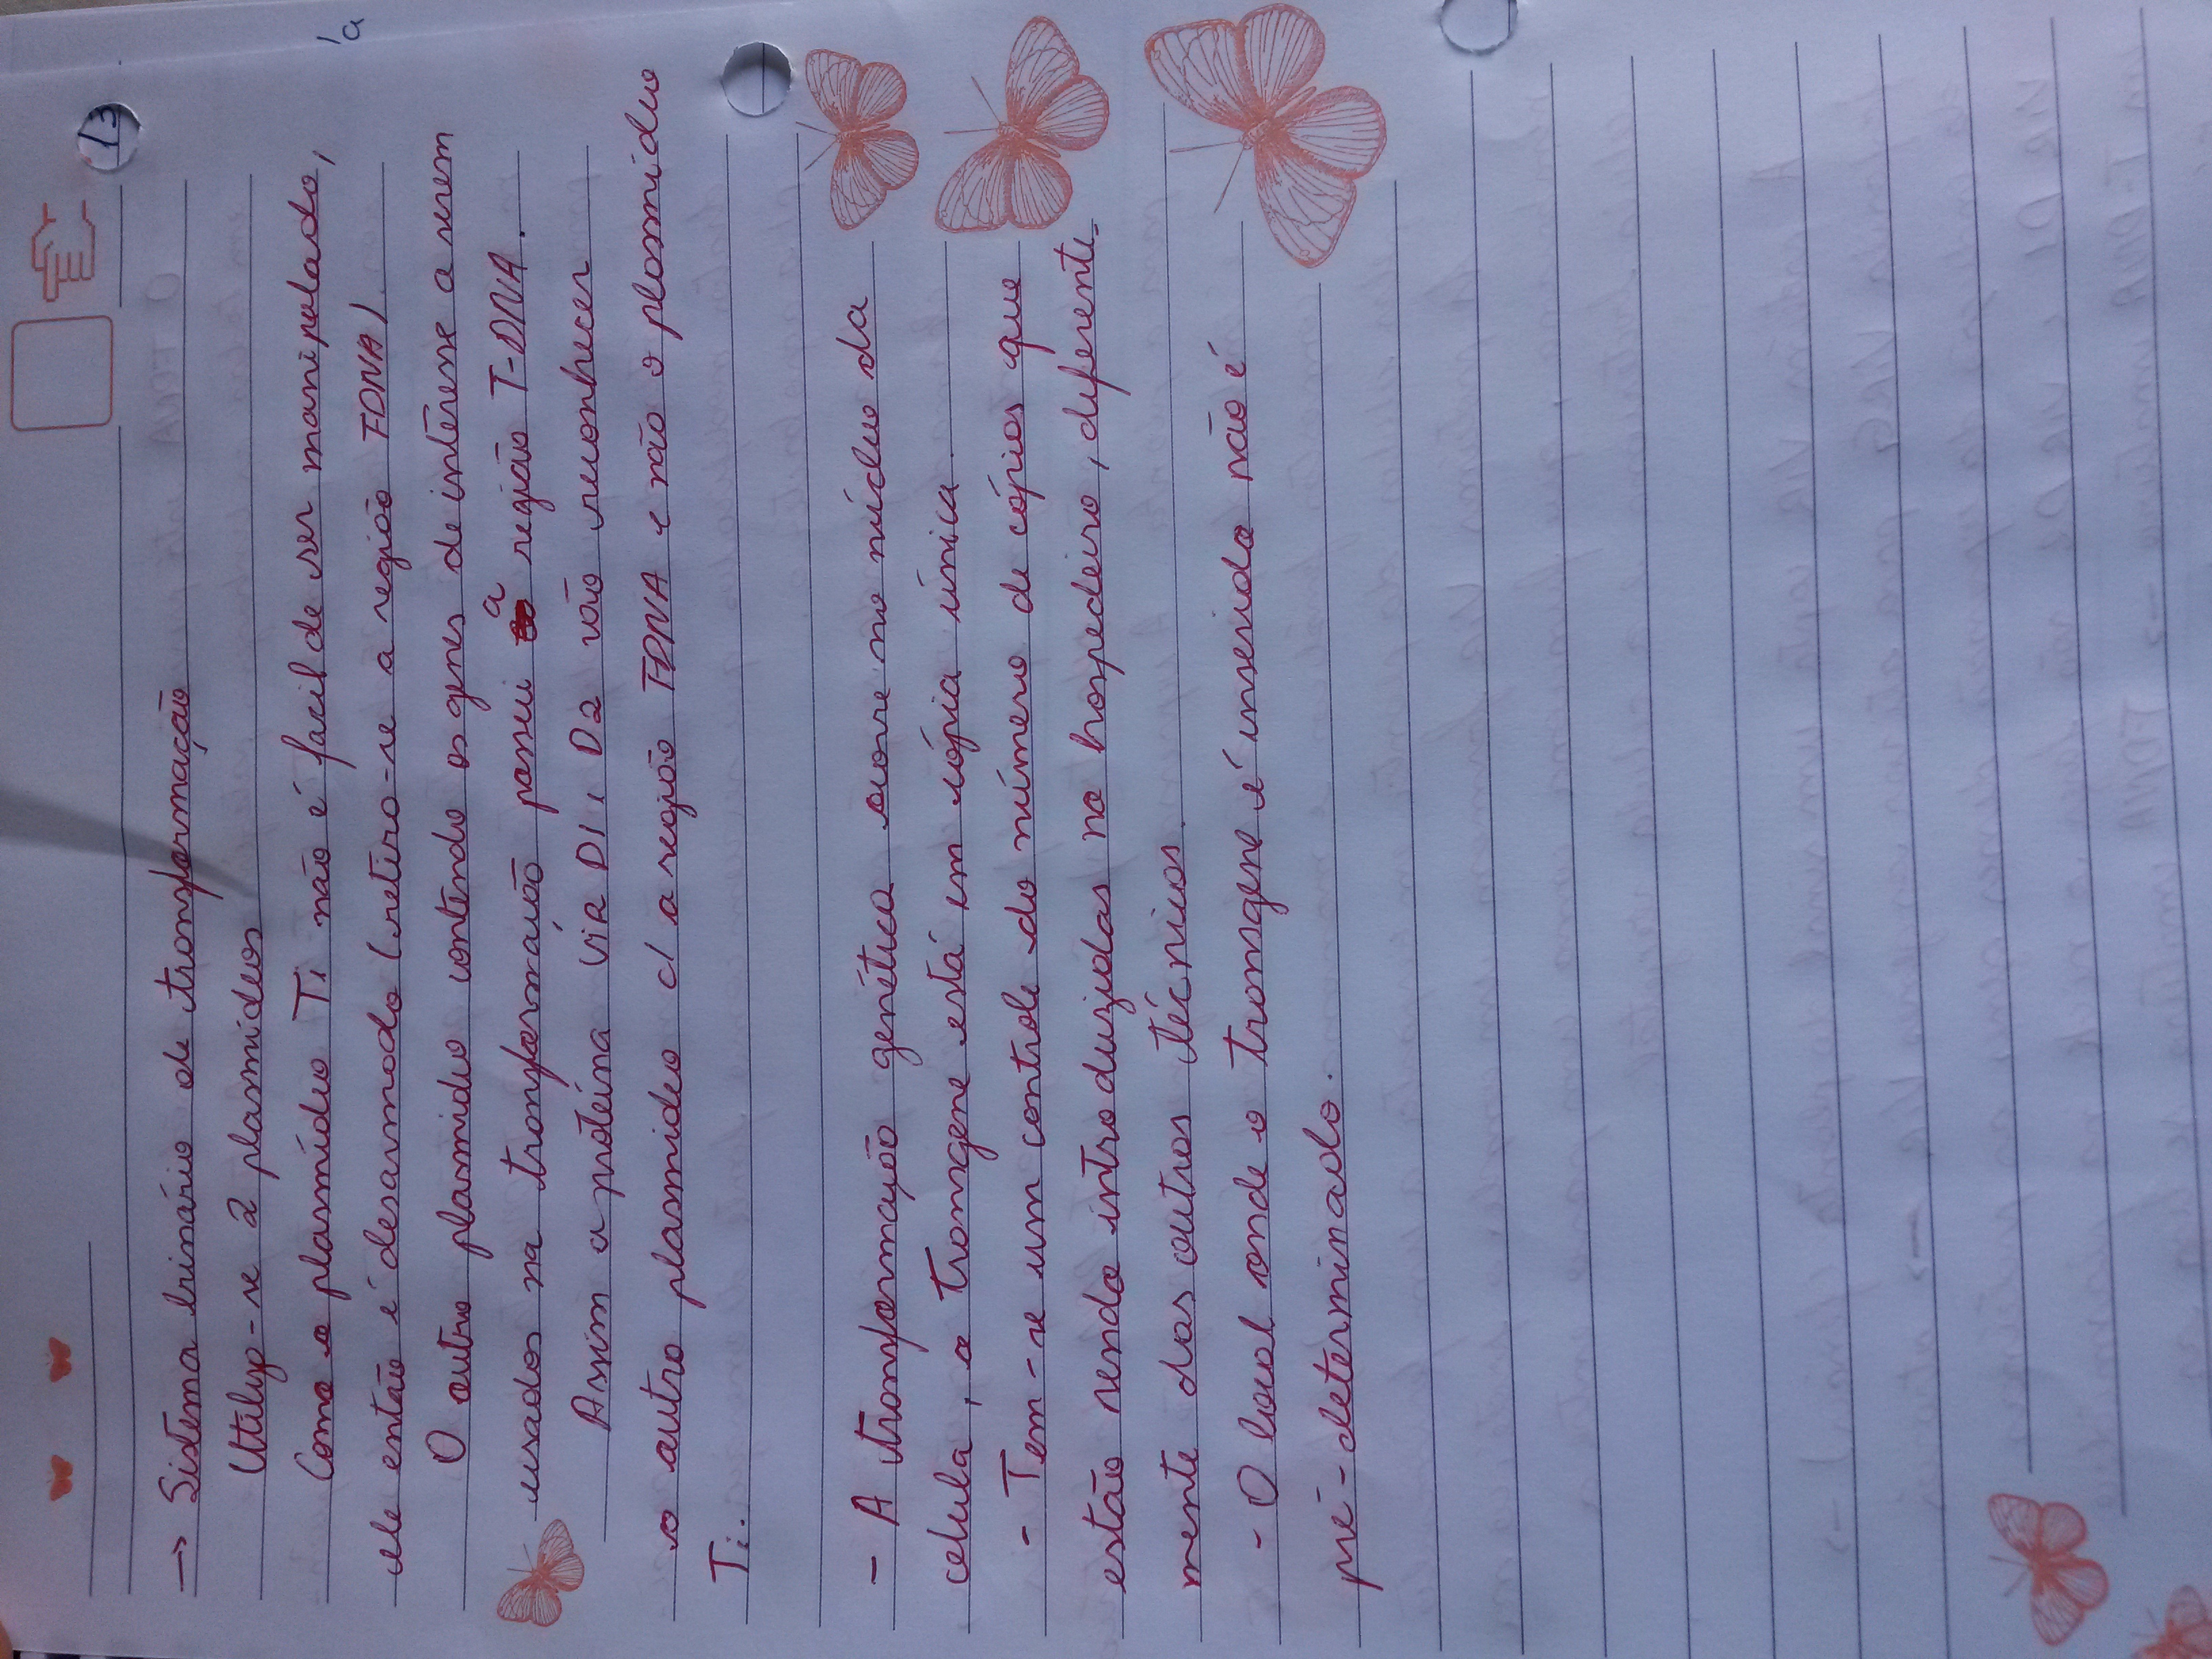 13
→ Sistema binário de transformação
Utiliza-se 2 plasmídeos
Como o plasmídeo Ti não é facil de ser manipulado,
ele então é desarmado (retira-se a região TDNA)
O outro plasmideo contendo os genes de interesse a serem
usados na transformação possui a região T-DNA.
Assim a proteína Vir D1, D2 vão reconhecer
o outro plasmideo c/ a região TDNA e não o plasmídeo
Ti.
- A transformação genética ocorre no núcleo da
celula, o transgene está em cópia única
- Tem-se um controle do número de cópias que
estão sendo introduzidas no hospedeiro, diferente-
mente das outras técnicas.
- O local onde o transgene é inserido não é
pré-determinado.